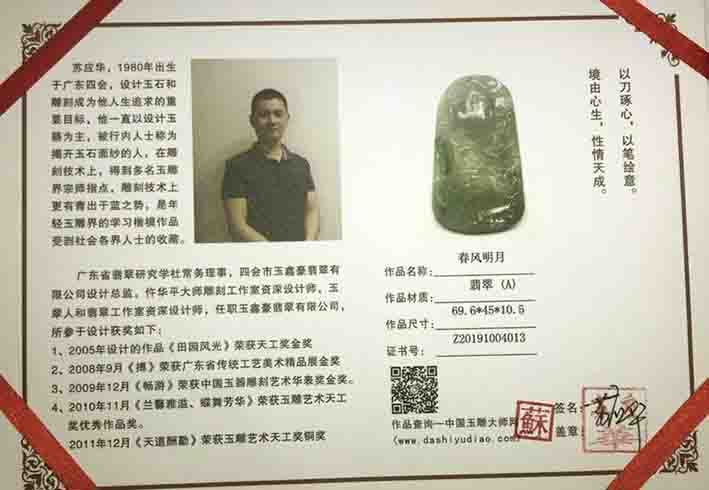 苏应华，1980年出生
于广东四会，设计玉石和
雕刻成为他人生追求的重
要目标，他一直以设计玉
雕为主，被行内人士称为
揭开玉石面纱的人，在雕
刻技术上，得到多名玉雕
界宗师指点，雕刻技术上
更有青出于蓝之势，是年
轻玉雕界的学习楷模作品
受到社会各界人士的收藏。
广东省翡翠研究学社常务理事，四会市玉鑫豪翡翠有
限公司设计总监，仵华平大师雕刻工作室资深设计师，玉
翠人和翡翠工作室资深设计师，任职玉鑫豪翡翠有限公司，
所参于设计获奖如下：
1、2005年设计的作品《田园风光》荣获天工奖金奖
2、2008年9月《搏》荣获广东省传统工艺美术精品展金奖
3、2009年12月《畅游》荣获中国玉器雕刻艺术华表奖金奖。
4、2010年11月《兰馨雅溢、蝶舞芳华》荣获玉雕艺术天工
奖优秀作品奖。
2011年12月《天道酬勤》荣获玉雕艺术天工奖铜奖
以刀琢心，以笔绘意。
境由心生，性情天成。
作品名称：春风明月
作品材质：翡翠 (A)
作品尺寸：69.6*45*10.5
证书号：Z20191004013
作品查询—中国玉雕大师网
(www.dashiyudiao.com)
蘇
签名：
盖章：